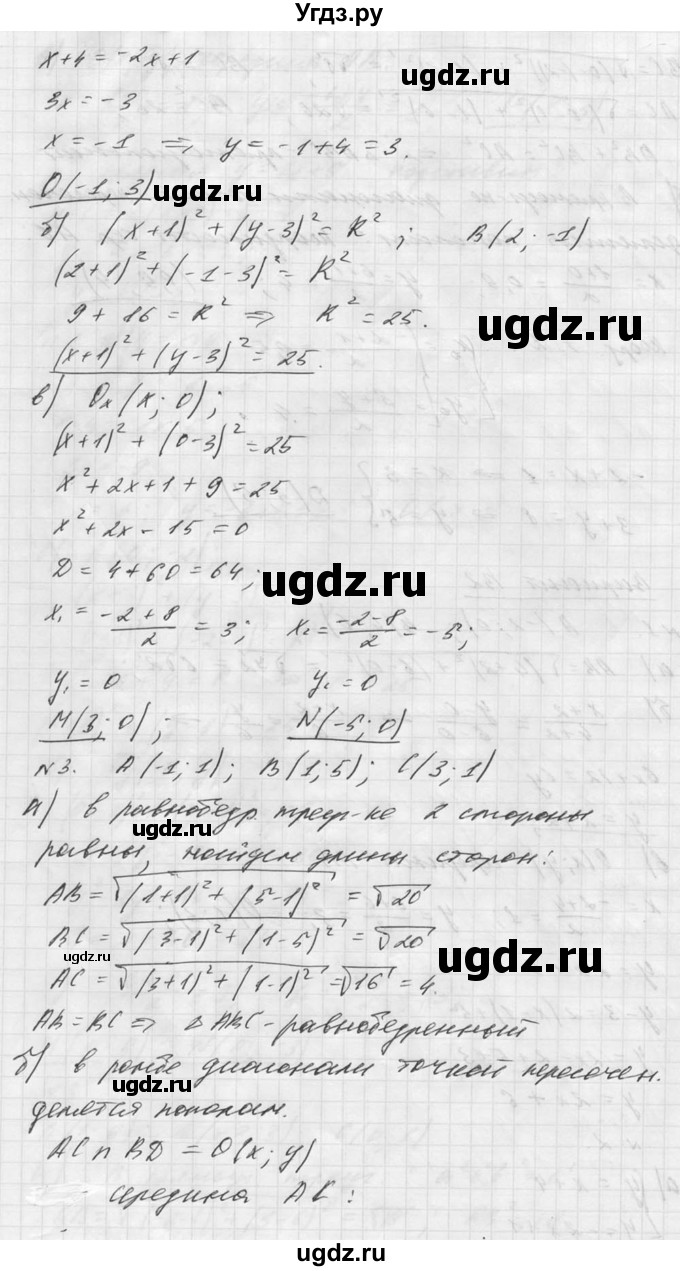 Угдз.ру
x+4=-2x+1
ugdz.ru
3x=-3
x=-1 ⇒ y=-1+4=3.
O(-1; 3)
ugdz.ru
б) (x+1)²+(y-3)²=R²; B(2; -1)
(2+1)²+(-1-3)²=R²
9+86=R² ⇒ R²=25.
ugdz.ru
(x+1)²+(y-3)²=25.
в) Ox(x; 0);
(x+1)²+(0-3)²=25
x²+2x+1+9=25
x²+2x-15=0
D=4+60=64;
ugdz.ru
x₁=(-2+8)/2=3; x₂=(-2-8)/2=-5;
y₁=0 y₂=0
M(3; 0); N(-5; 0)
ugdz.ru
№3. A(-1; 1); B(1; 5); C(3; 1)
а) в равнобедр. треуг-ке 2 стороны
ugdz.ru
равны, найдем длины сторон:
AB=√((1+1)²+(5-1)²)=√20
BC=√((3-1)²+(1-5)²)=√20
ugdz.ru
ugdz.ru
AC=√((3+1)²+(1-1)²)=√16=4.
AB=BC ⇒ △ABC-равнобедренный
б) в ромбе диагонали точкой пересечен.
ugdz.ru
делятся пополам.
AC∩BD=O(x; y)
середина AC:
ugdz.ru
ugdz.ru